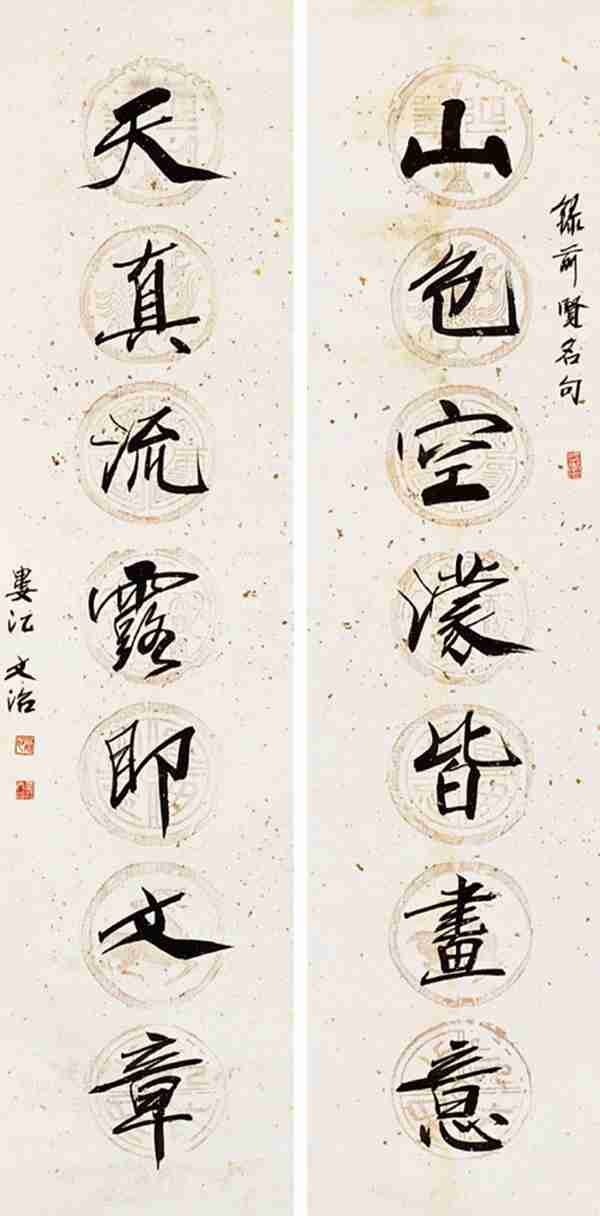 錄前賢名句
山色空濛皆畫意
天真流露即文章
婁江文治